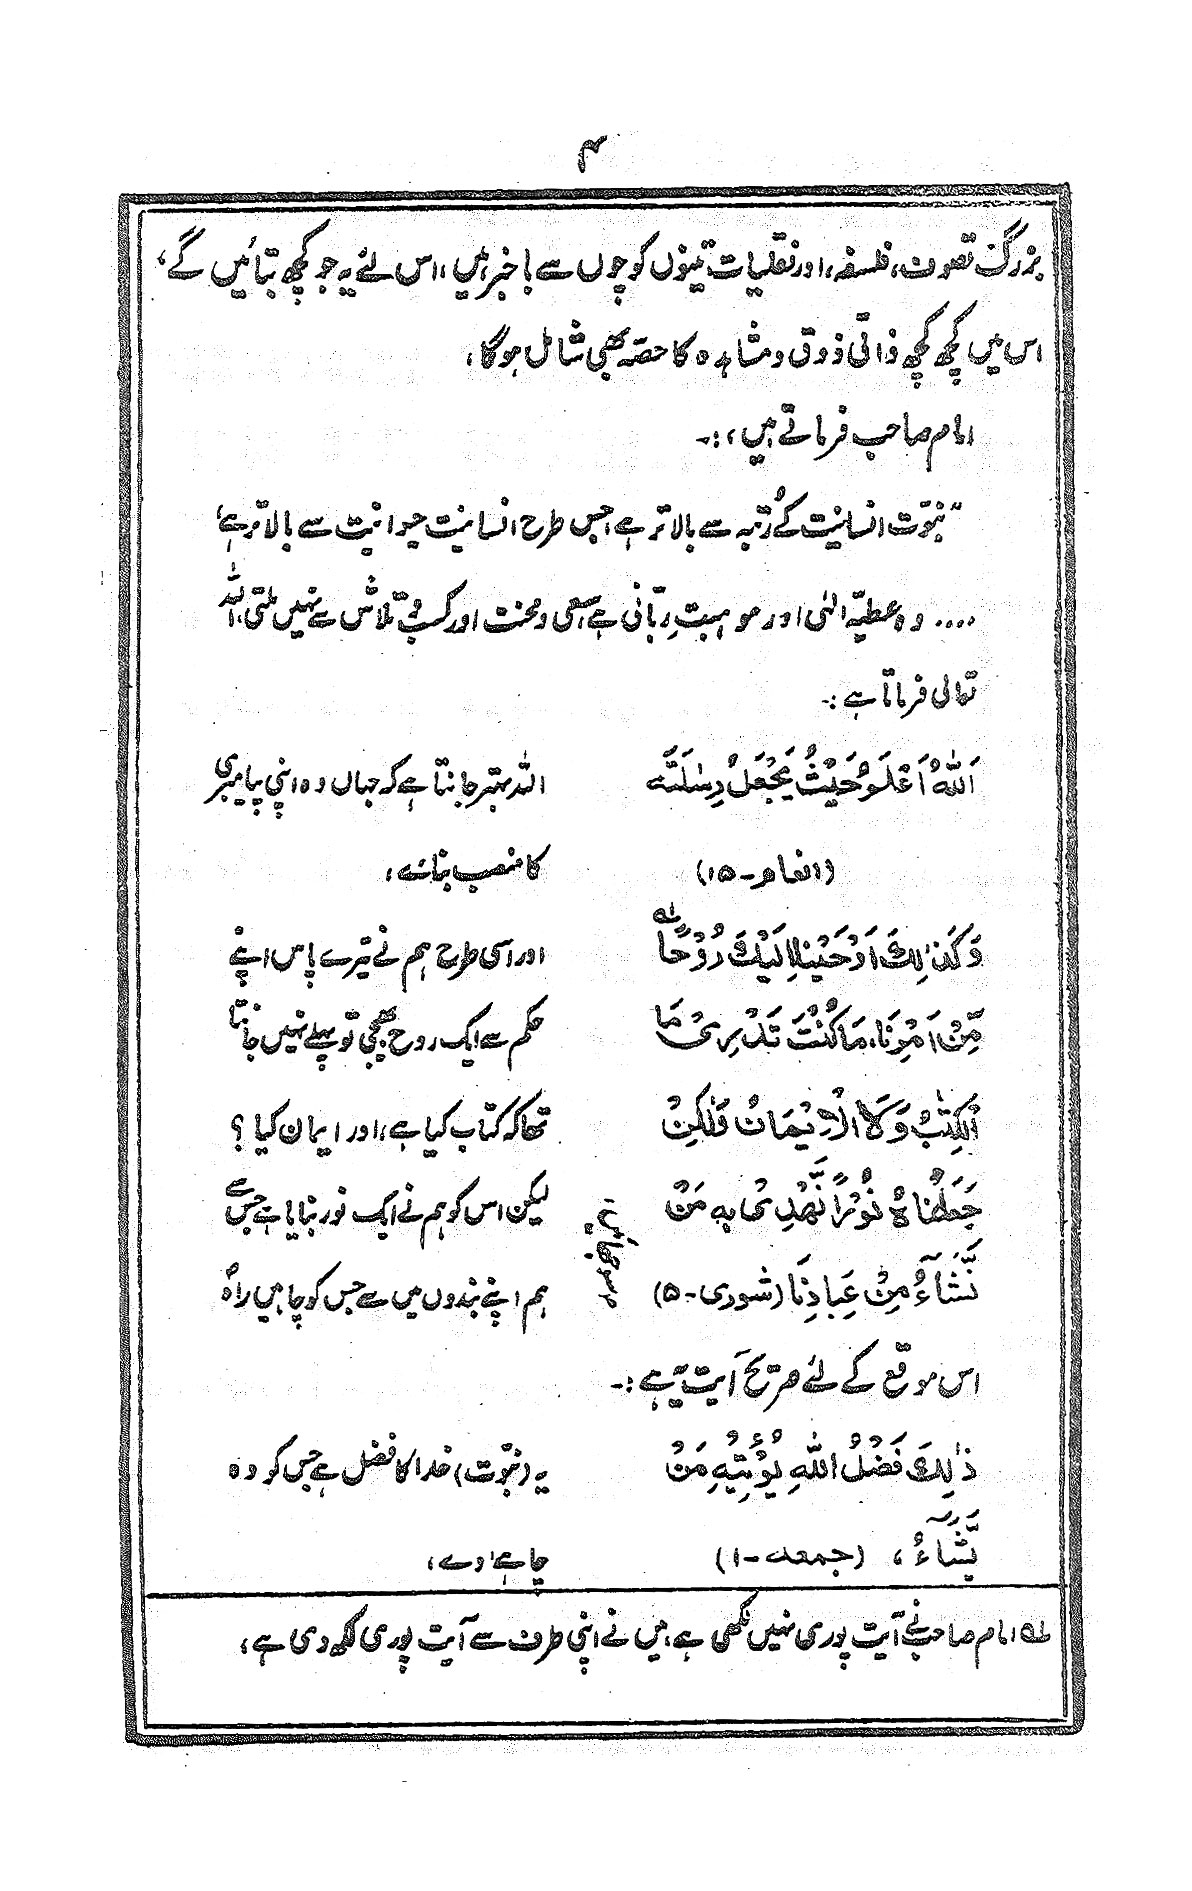 ۴
بزرگ تصوف، فلسفہ، اور نقلیات تینوں کوچوں سے باخبر ہیں، اس لئے یہ جو کچھ بتائیں گے،
اس میں کچھ کچھ ذاتی ذوق و مشاہدہ کا حصہ بھی شامل ہوگا،
امام صاحب فرماتے ہیں،:۔
"نبوّت انسانیت کے رُتبہ سے بالاتر ہے جس طرح انسانیت حیوانیت سے بالاتر ہے،
.... وہ عطیۂ الٰہی اور موہبت ربّانی ہے سعی و محنت اور کسب و تلاش سے نہیں ملتی، اللہ
تعالیٰ فرماتا ہے:۔
اَللّٰهُ اَعْلَمُ حَیْثُ یَجْعَلُ رِسٰلَتَهٗ اللہ بہتر جانتا ہے کہ جہاں وہ اپنی پیامبری
(انعام-۱۵) کا منصب بنائے،
وَكَذٰلِكَ اَوْحَیْنَا اِلَیْكَ رُوْحًا ؎۱ اور اسی طرح ہم نے تیرے پاس اپنے
مِّنْ اَمْرِنَا، مَا كُنْتَ تَدْرِیْ مَا حکم سے ایک روح بھیجی تو پہلے نہیں جانتا
الْكِتٰبُ وَلَا الْاِیْمَانُ وَلٰكِنْ تھا کہ کتاب کیا ہے، اور ایمان کیا؟
جَعَلْنَاهُ نُوْرًا نَّهْدِیْ بِهٖ مَنْ لیکن اس کو ہم نے ایک نور بنایا ہے جس سے
نَّشَآءُ مِنْ عِبَادِنَا (شوریٰ-۵) ہم اپنے بندوں میں سے جس کو چاہیں راہ
سوجھائیں،
اس موقع کے لئے صریح آیت یہ ہے:۔
ذٰلِكَ فَضْلُ اللّٰهِ یُؤْتِیْهِ مَنْ یہ (نبوّت) خدا کا فضل ہے جس کو وہ
یَّشَآءُ، (جمعہ-۱) چاہے دے،
؎۱ امام صاحب نے آیت پوری نہیں لکھی ہے، میں نے اپنی طرف سے آیت پوری لکھ دی ہے،